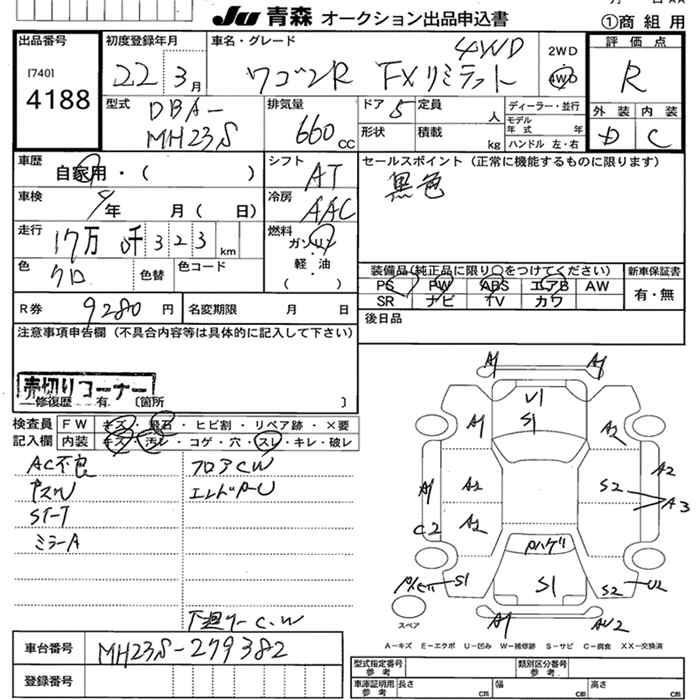 Ju 青森 オークション出品申込書
①商組用
出品番号
[740]
4188
初度登録年月
22 3月
車名・グレード
ワゴンR FXリミテッド
4WD
2WD
4WD
評価点
R
外装 内装
D C
型式
DBA-
MH23S
排気量
660cc
ドア 5
形状
定員 人
積載 kg
ディーラー・並行
モデル年式 年
ハンドル 左・右
車歴
自家用・( )
シフト
AT
セールスポイント(正常に機能するものに限ります)
黒色
車検
年 月(日)
冷房
AAC
走行
17万 千323 km
燃料
ガソリン
軽・油
( )
色
クロ
色替
色コード
装備品(純正品に限り○をつけてください)
PS PW ABS エアB AW
SR ナビ TV カワ
新車保証書
有・無
R券 9280円
名変期限 月 日
後日品
注意事項申告欄(不具合内容等は具体的に記入して下さい)
売切りコーナー
修復歴 有 〔箇所 〕
検査員記入欄
FW キズ・飛石・ヒビ割・リペア跡・×要
内装 キズ・汚レ・コゲ・穴・スレ・キレ・破レ
AC不良
フロアCW
ミラーA
下廻りーC.W
A1
A1
U1
S1
A1
A2
A1
A2
A2
S2
A3
C2
A2
Pハゲ
S1
S1
S2
U2
スペア
A1
AU2
A－キズ E－エクボ U－凹み W－補修跡 S－サビ C－腐食 XX－交換済
車台番号
MH23S-279382
登録番号
型式指定番号
参考
類別区分番号
参考
車庫証明用
参考
長さ cm
幅 cm
高さ cm